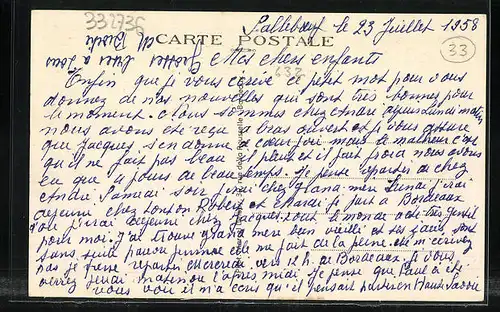 332736
Sallebœuf le 23 Juillet 1958
CARTE POSTALE
33
Mes chers enfants
332
Enfin que je vous écrive ce petit mot pour vous
donnez de nos nouvelles qui sont très bonnes pour
le moment. Nous sommes chez André depuis Lundi matin
nous avons été reçu à bras ouvert et je vous assure
que Jacques s'en donne à cœur joie mais le malheur c'est
qu'il ne fait pas beau il pleut et il fait froid nous avons
eu que 4 jours de beau temps. Je pense repartir de chez
André Samedi soir j'irai chez grand mère Lundi j'irai
déjeuner chez tonton Robert et Mardi je pars à Bordeaux
j'irai déjeuner chez Jacques tout le monde a été très gentil
pour moi. J'ai trouvé grand mère bien vieilli et ses jambes sont
sans pouvoir elle me fait de la peine m'écrivez
pas je pense repartir Mercredi vers 12 h de Bordeaux. Je vous
verrez jeudi matin ou l'après midi. Je pense que Paul a été
vous voir il m'a écris qu'il pensait partir en Haute Savoie
Grosses bises à tous